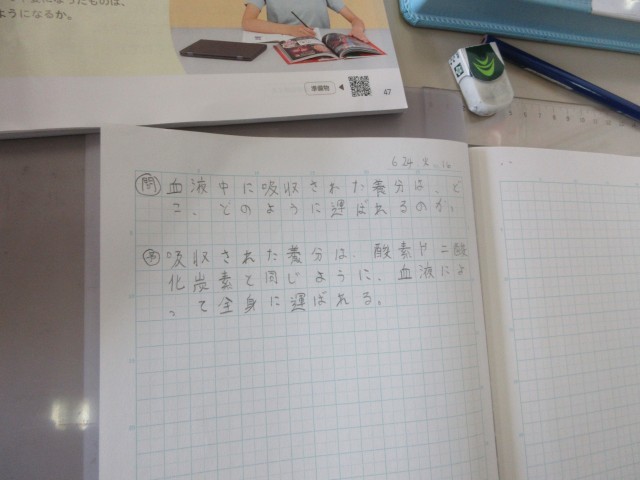 ようになるか。
準備物
47
問 血液中に吸収された養分は、ど
こ、どのように運ばれるのか。
予 吸収された養分は、酸素や二酸
化炭素と同じように、血液によ
って全身に運ばれる。